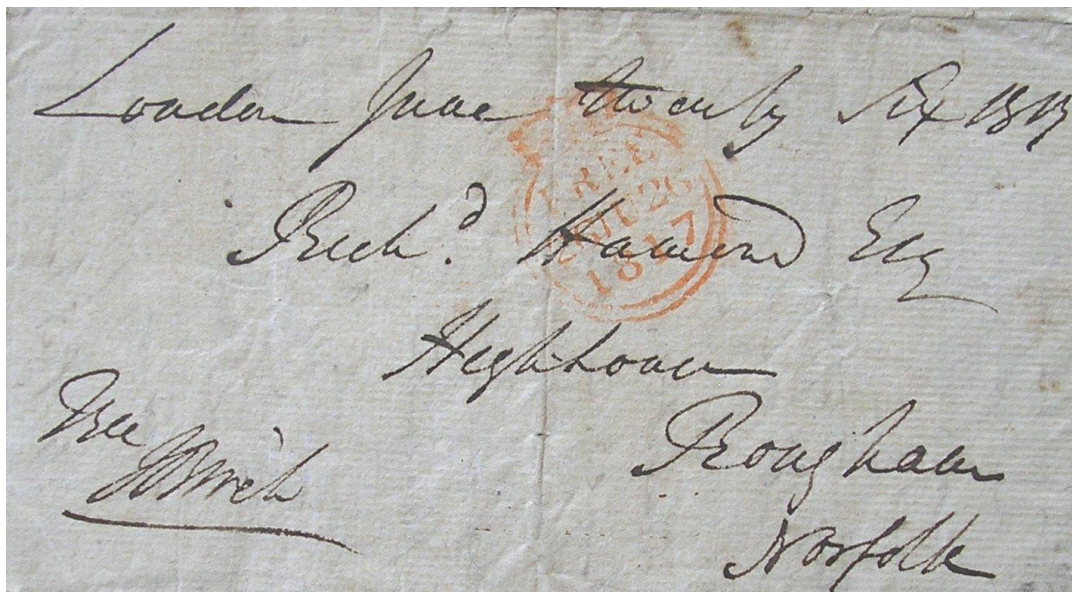 London June twenty Six 1817
FREE
26 JU 26
1817
Richd. Hamond Esq
Highhouse
Free
Rougham
Norfolk